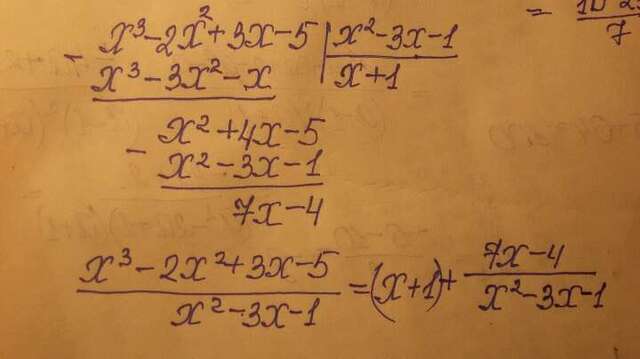 x³-2x²+3x-5 | x²-3x-1
- x³-3x²-x | x+1
x²+4x-5
- x²-3x-1
7x-4
x³-2x²+3x-5 / x²-3x-1 = (x+1) + 7x-4 / x²-3x-1
=
7